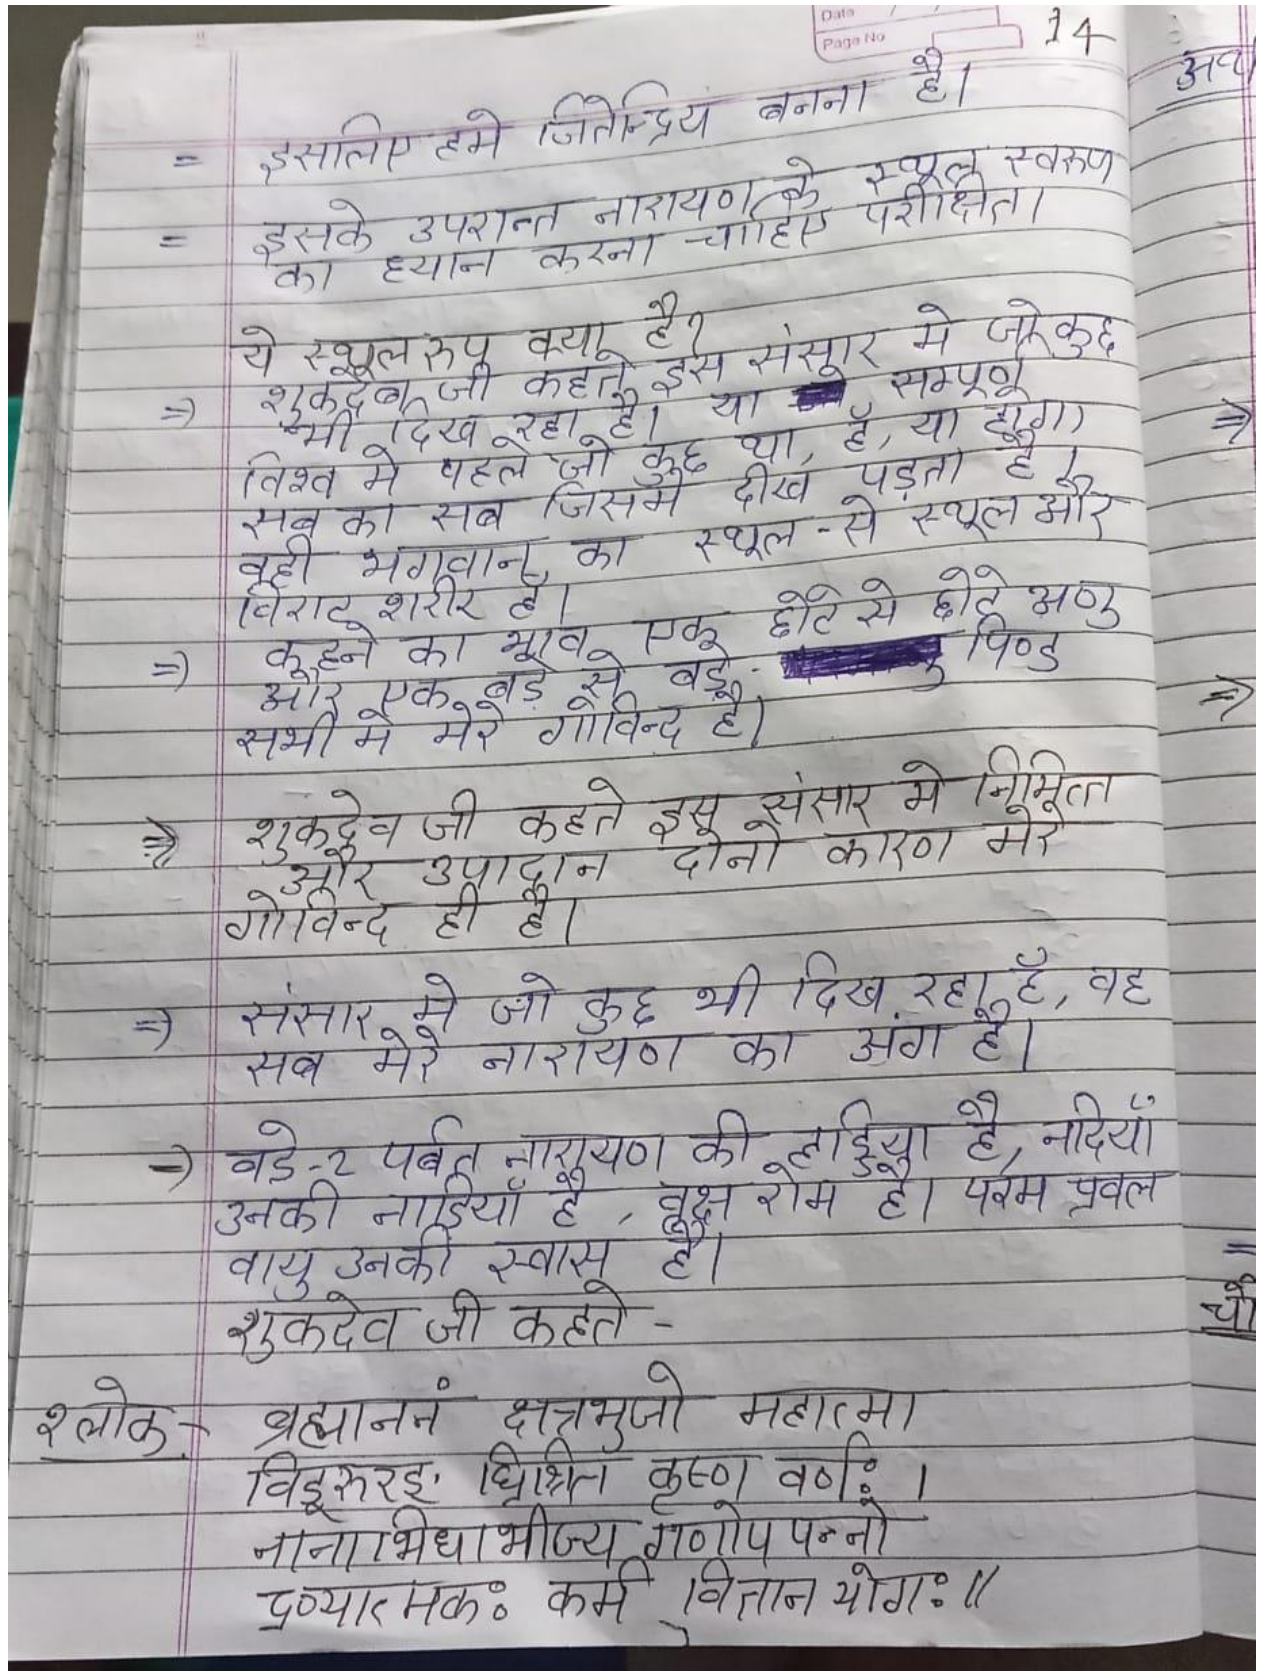 Date / /
Page No
14
= इसलिए हमे जितेन्द्रिय बनना है।
= इसके उपरान्त नारायण के स्थूल स्वरुप
का ध्यान करना चाहिए परीक्षित।
ये स्थूल रुप क्या है?
=) शुकदेव जी कहते इस संसार मे जो कुछ
भी दिख रहा है। या सम्पूर्ण
विश्व मे पहले जो कुछ था, है, या होगा
सब का सब जिसमे दीख पड़ता है।
वही भगवान् का स्थूल-से स्थूल और
विराट् शरीर है।
=) कहने का भाव एक छोटे से छोटे अणु
और एक बड़े से बड़े पिण्ड
सभी मे मेरे गोविन्द है।
=) शुकदेव जी कहते इस संसार मे निमित्त
और उपादान दोनो कारण मेरे
गोविन्द ही है।
=) संसार मे जो कुछ भी दिख रहा है, वह
सब मेरे नारायण का अंग है।
-) बडे-2 पर्बत नारायण की हाड्डिया है, नदियाँ
उनकी नाडियाँ है, वृक्ष रोम है। परम प्रवल
वायु उनकी स्वास है।
शुकदेव जी कहते -
श्लोक - ब्रह्माननं क्षत्रभुजो महात्मा
विडूरुरङ् घ्रिश्रित कृष्ण वर्णः।
नानाभिधाभीज्य गणोपपन्नो
द्रव्यात्मकः कर्म वितान योगः॥
अव
=)
=)
=
चौ